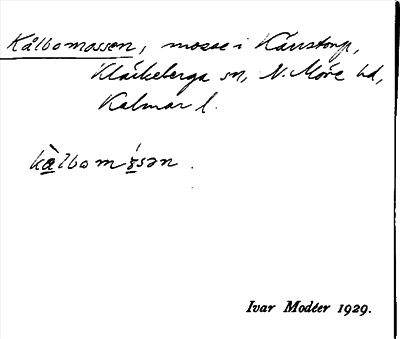 Kålbomossen, mosse i Kärrstorp,
Kläckeberga sn, N. Möre hd,
Kalmar l.
kàlbomɷ́sən.
Ivar Modéer 1929.